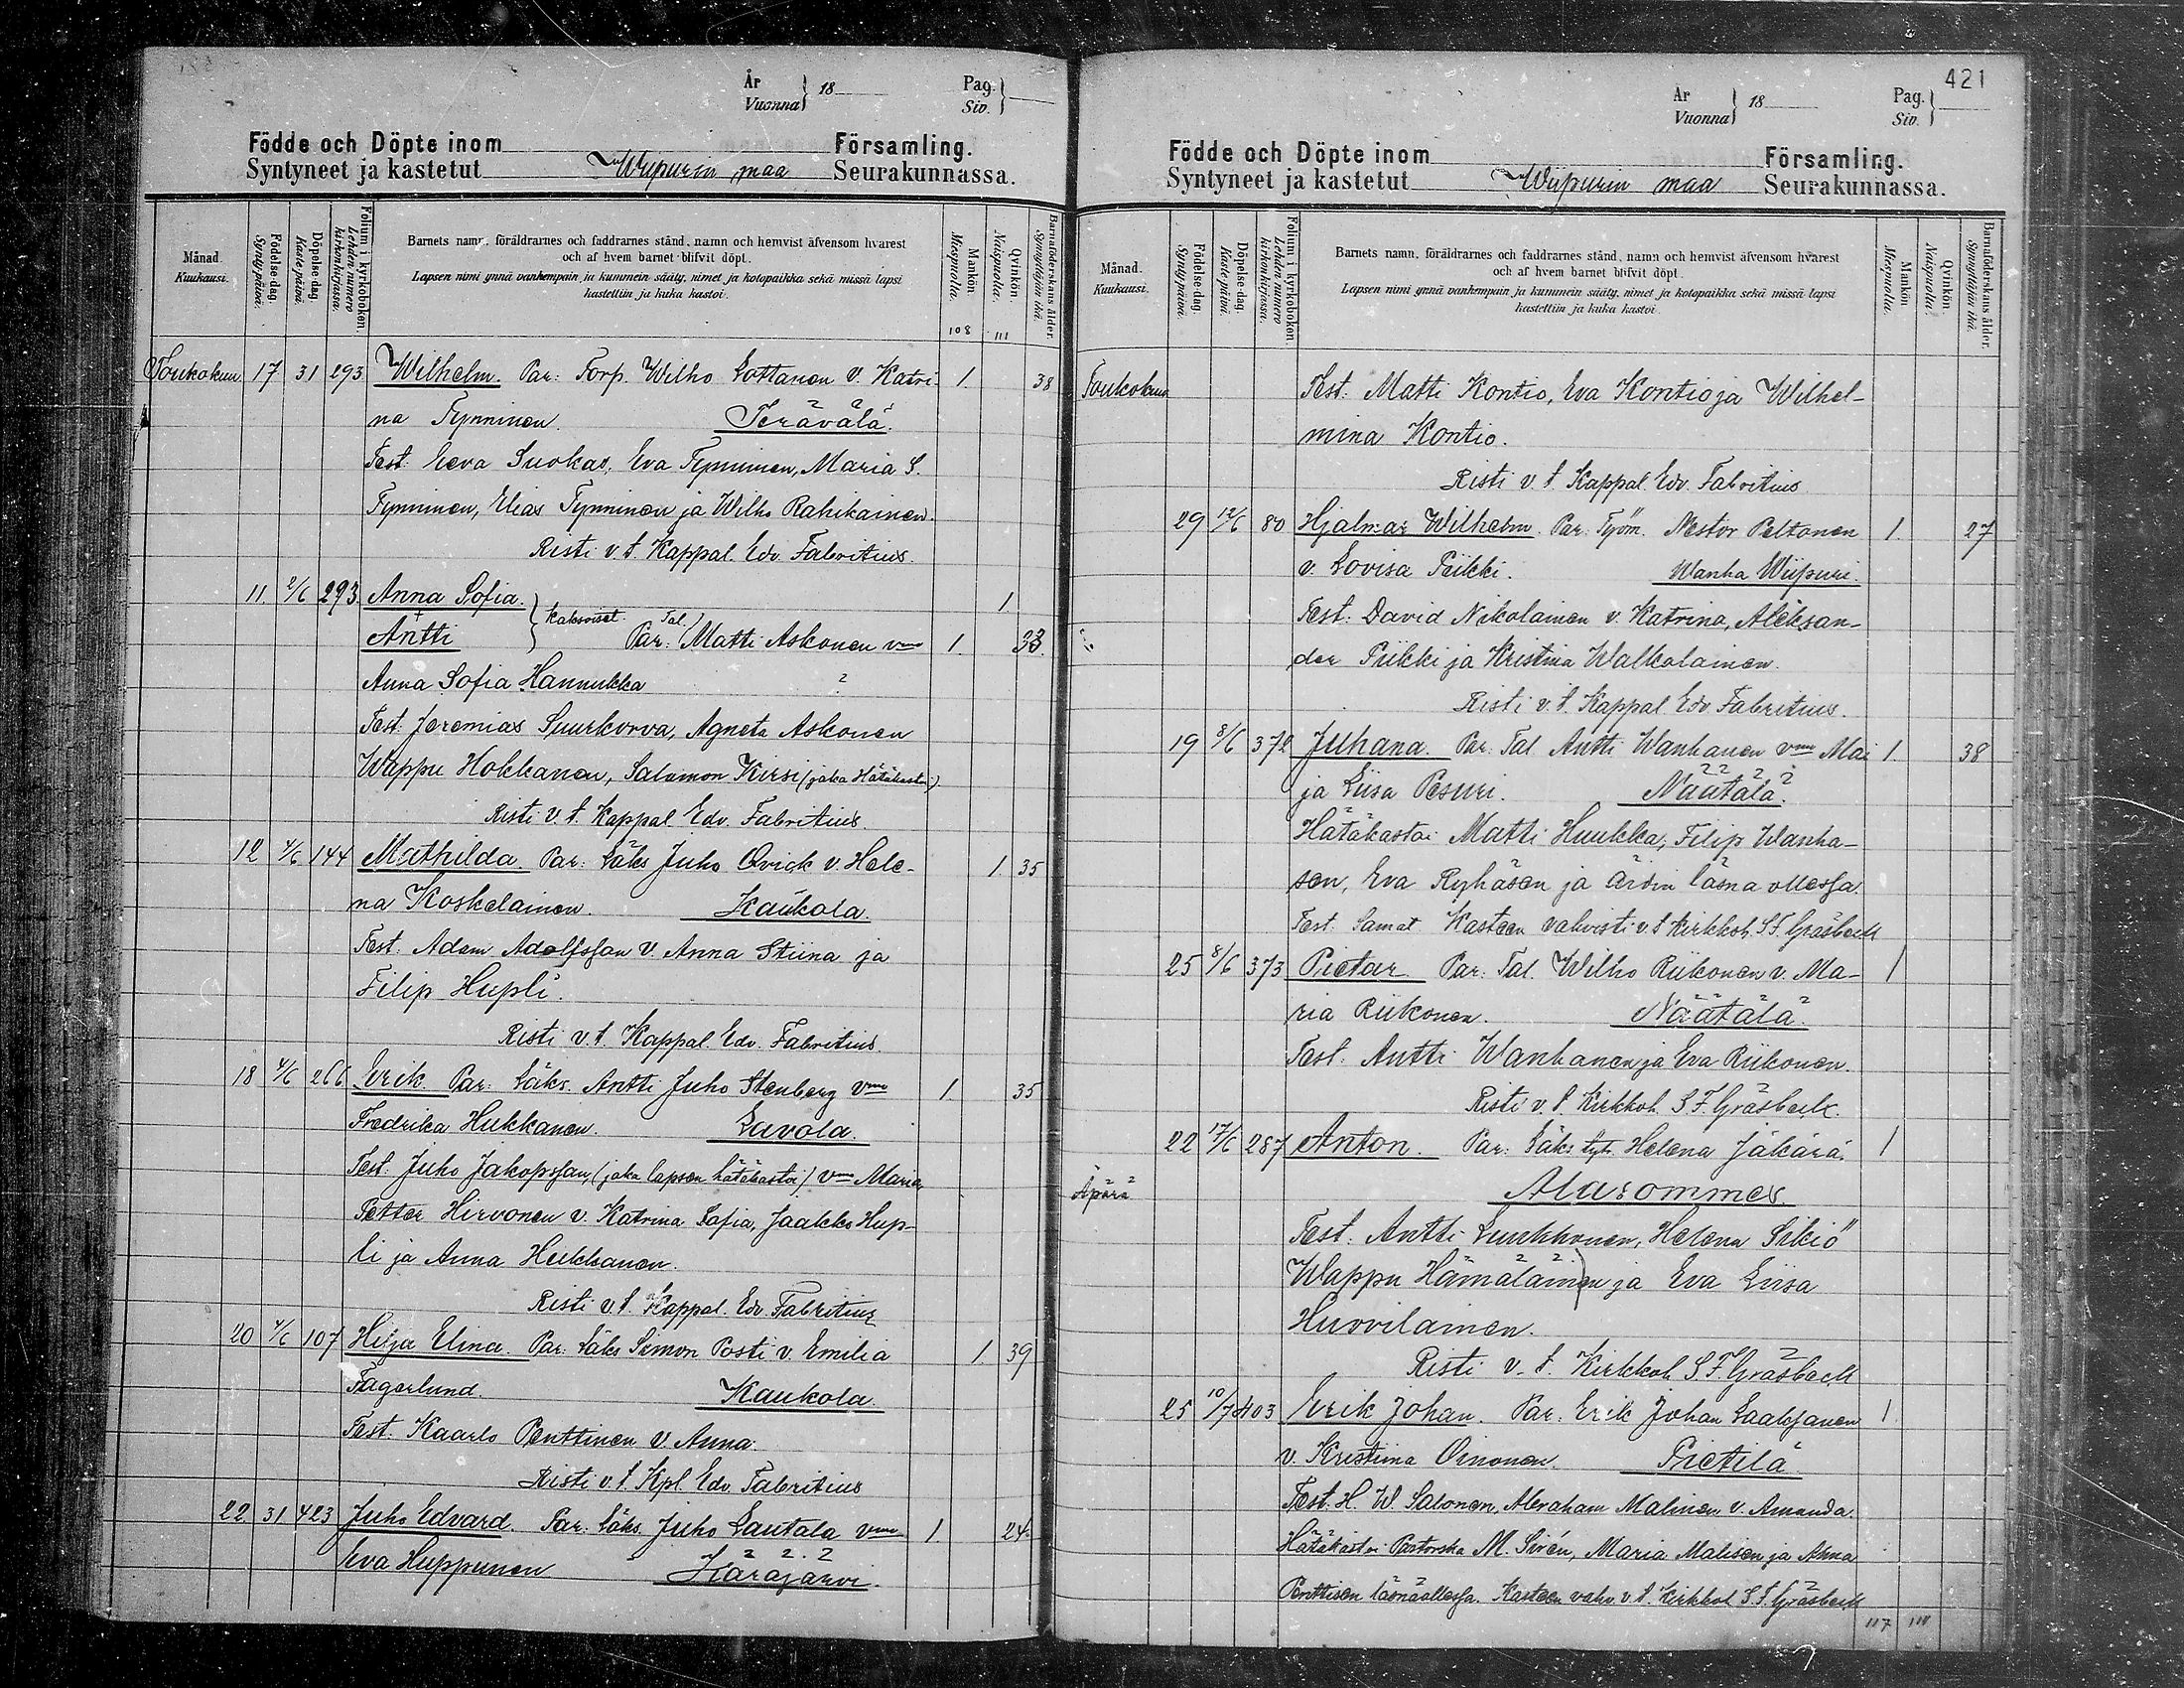 År
Vuonna } 18
Pag.
Siv. }
Födde och Döpte inom Församling.
Syntyneet ja kastetut Wiipurin maa Seurakunnassa.
Månad.
Kuukausi.
Födelse-dag.
Synty-päivä.
Döpelse-dag.
Kaste-päivä.
Folium i kyrkoboken.
Lehden numero kirkonkirjassa.
Barnets namn, föräldrarnes och faddrarnes stånd, namn och hemvist äfvensom hvarest
och af hvem barnet blifvit döpt.
Lapsen nimi ynnä vanhempain ja kummein sääty, nimet ja kotopaikka sekä missä lapsi
kastettiin ja kuka kastoi.
Mankön.
Miespuolia.
Qvinkön.
Naispuolia.
Barnaföderskans ålder.
Synnyttäjän ikä.
108 111
Toukokuu 17 31 293 Wilhelm. Par: Torp. Wilho Lottanen v. Katri- 1. 38
na Tynninen. Terävälä.
Test: Eeva Suokas, Eva Tynninen, Maria S.
Tynninen, Elias Tynninen ja Wilho Rahikainen.
Risti v.t. Kappal. Edv. Fabritius.
11. 2/6 293. Anna Sofia. } Kaksoiset. 1
Antti Par: Tal. Matti Askonen vmo 1. 33.
Anna Sofia Hannukka ?
Test: Jeremias Suurkorva, Agneta Askonen
Wappu Hokkanen, Salomon Kirsi (joka Hätäkastoi).
Risti v.t. Kappal. Edv. Fabritius.
12 4/6 144 Mathilda. Par: Läks Juho Qvick v. Hele- 1 35
na Koskelainen. Kaukola.
Test. Adam Adolfsson v. Anna Stiina ja
Filip Hupli.
Risti v.t. Kappal. Edv. Fabritius.
18 4/6 266 Erik. Par: Läks. Antti Juho Stenberg vmo 1 35
Fredrika Hukkanen. Lavola.
Test. Juho Jakopsson, (joka lapsen hätäkastoi) vmo Maria,
Petter Hirvonen v. Katrina Sofia, Jaakko Hup-
li ja Anna Hukkanen.
Risti v.t. Kappal. Edv. Fabritius
20 4/6 107 Hilja Elina. Par: Läks Simon Posti v. Emilia 1. 39
Fagerlund. Kaukola.
Test. Kaarlo Penttinen v. Anna.
Risti v.t. Kpl. Edv. Fabritius
22 31 423 Juho Edvard. Par: Läks. Juho Lautala vmo 1. 24.
Eva Huppunen Häräjärvi.
421
År
Vuonna } 18
Pag.
Siv. }
Födde och Döpte inom Församling.
Syntyneet ja kastetut Wiipurin maa Seurakunnassa.
Månad.
Kuukausi.
Födelse-dag.
Synty-päivä.
Döpelse-dag.
Kaste-päivä.
Folium i kyrkoboken.
Lehden numero kirkonkirjassa.
Barnets namn, föräldrarnes och faddrarnes stånd, namn och hemvist äfvensom hvarest
och af hvem barnet blifvit döpt.
Lapsen nimi ynnä vanhempain ja kummein sääty, nimet ja kotopaikka sekä missä lapsi
kastettiin ja kuka kastoi.
Mankön.
Miespuolia.
Qvinkön.
Naispuolia.
Barnaföderskans ålder.
Synnyttäjän ikä.
Toukokuu Test: Matti Kontio, Eva Kontio ja Wilhel-
mina Kontio.
Risti v.t. Kappal. Edv. Fabritius
29 12/6 80 Hjalmar Wilhelm. Par. Työm. Nestor Peltonen 1. 27
v. Lovisa Piikki. Wanha Wiipuri.
Test: David Nikolainen v. Katrina, Aleksan-
der Piikki ja Kristina Walkolainen.
Risti v.t. Kappal Edv. Fabritius.
19 8/6 372 Juhana. Par: Tal. Antti Wanhanen vmo Mai 1. 38
ja Liisa Pesuri. Näätälä.
Hätäkastoi Matti Huukka, Filip Wanha-
sen, Eva Ryhäsen ja äidin läsna ollessa.
Test. Samat Kasteen vahvisti v.t Kirkkoh. S F. Gräsbeck
25 8/6 373 Pietar Par: Tal. Wilho Riikonen v. Ma- 1
ria Riikonen. Näätälä.
Test. Antti Wanhanen ja Eva Riikonen.
Risti v.t. Kirkkoh S F. Gräsbeck.
22 17/6 287 Anton. Par: Läks. tyt. Helena Jäkärä. 1
Äpärä Alasommes
Test: Antti Luukkonen, Helena Sikiö
Wappu Hämäläinen ja Eva Liisa
Huovilainen.
Risti v.t. Kirkkoh S F. Gräsbeck
25 10/7 403 Erik Johan. Par: Erik Johan Laaksonen 1.
v. Kristiina Oinonen. Pietilä
Test: H. W. Salonen, Abraham Malinen v. Amanda.
Hätäkastoi Pastorska M. Sirén, Maria Malisen ja Anna
Penttisen läsnäollessa. Kasteen vahv. v.t. Kirkkoh S. F. Gräsbeck
117 111